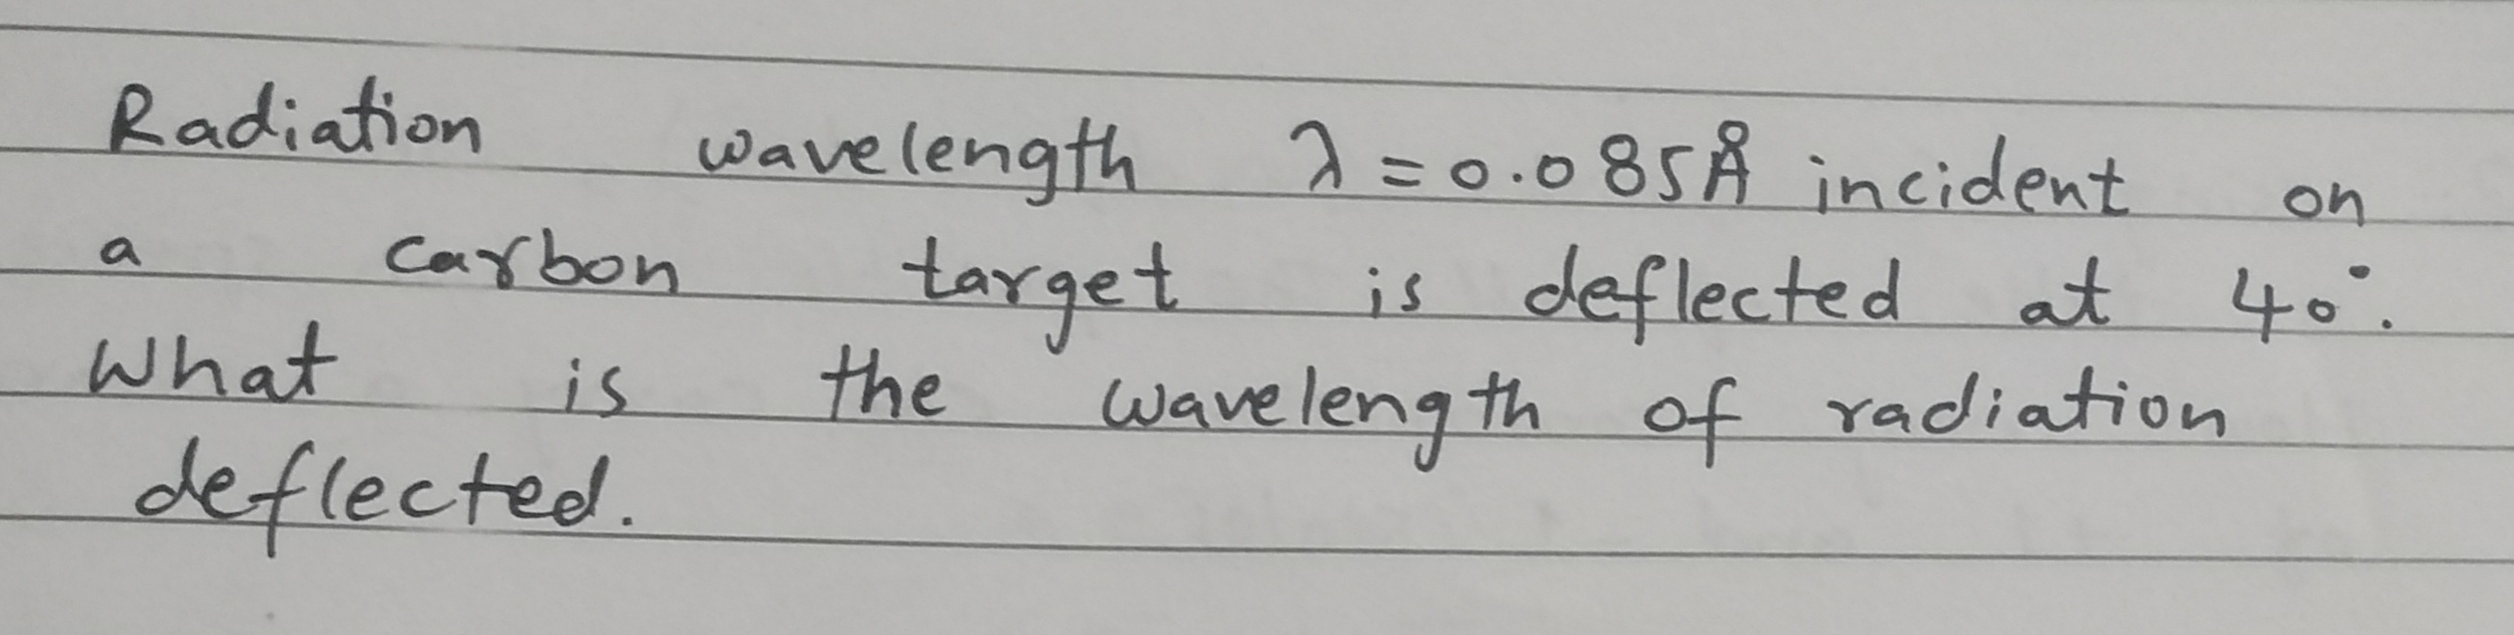 Radiation wavelength λ = 0.085Å incident on
a carbon target is deflected at 40°.
What is the wavelength of radiation
deflected.